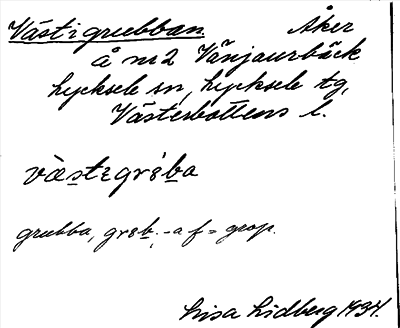 Västigrubban Åker
å nr 2 Vänjaurbäck
Lycksele sn, Lycksele tg,
Västerbottens l.
grubba, -a f = grop.
Lisa Lidberg 1934.